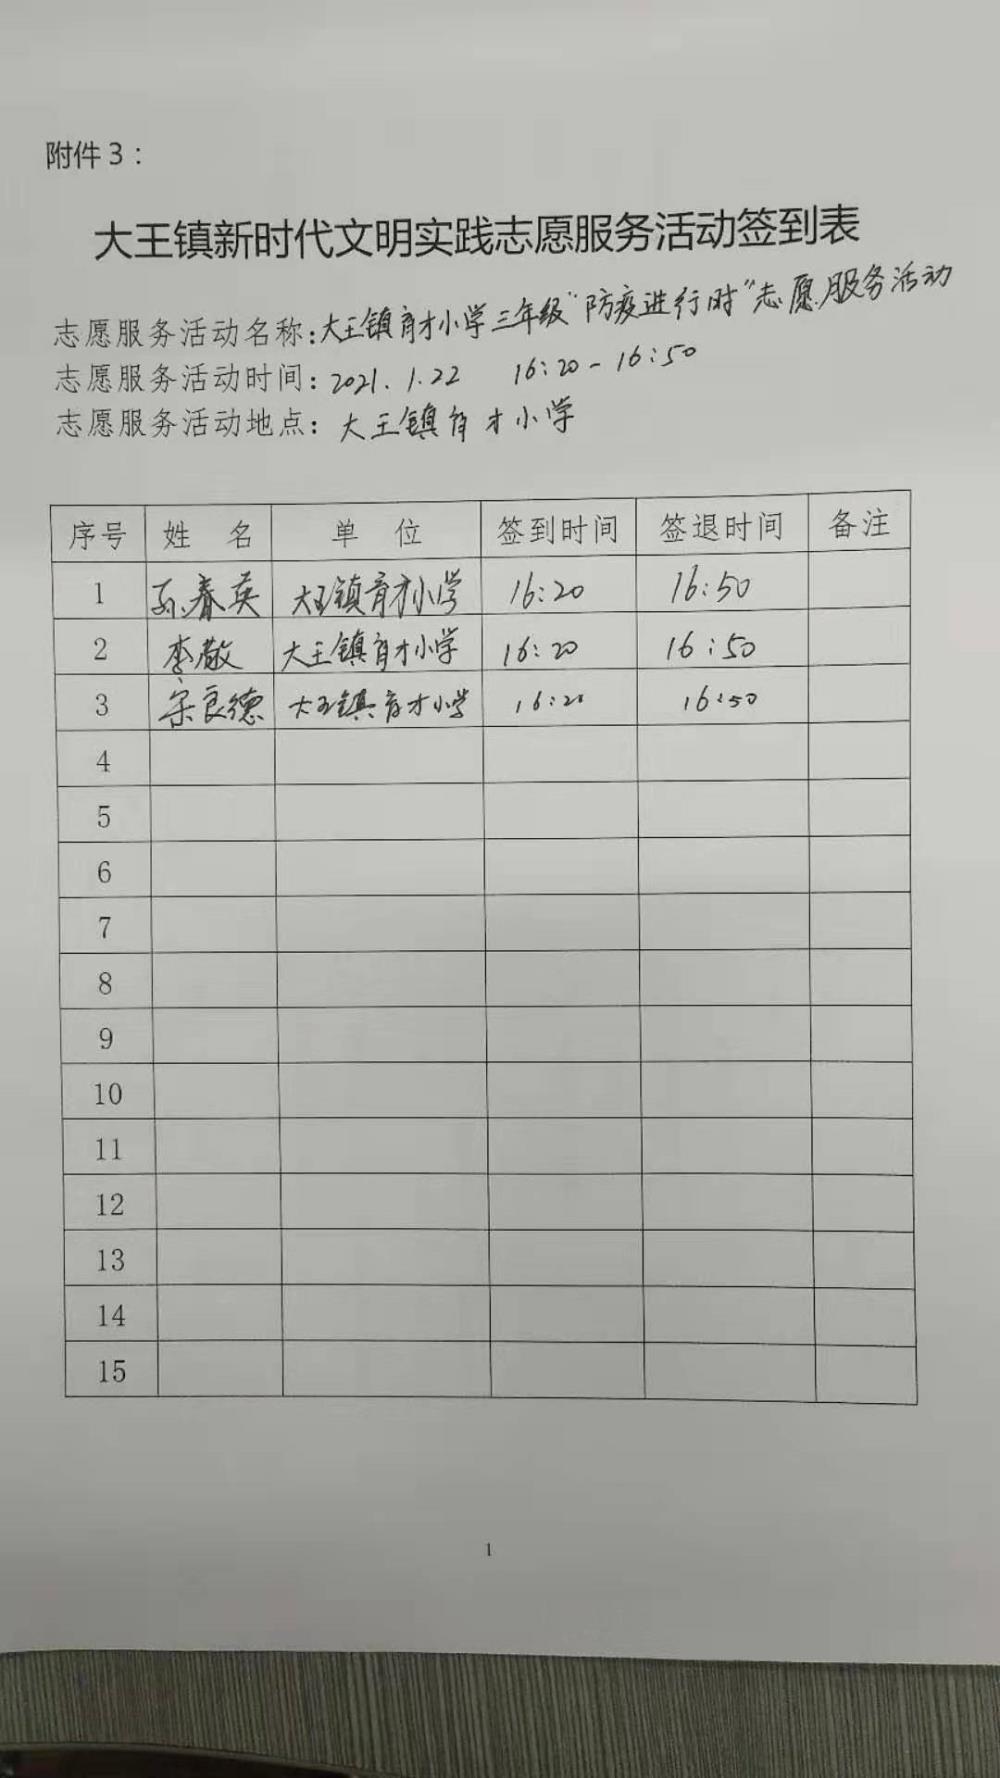 附件3：
大王镇新时代文明实践志愿服务活动签到表
志愿服务活动名称：大王镇育才小学三年级“防疫进行时”志愿服务活动
志愿服务活动时间：2021.1.22 16:20-16:50
志愿服务活动地点：大王镇育才小学
序号 姓名 单位 签到时间 签退时间 备注
1 孙春英 大王镇育才小学 16:20 16:50
2 李敬 大王镇育才小学 16:20 16:50
3 宗良德 大王镇育才小学 16:20 16:50
4
5
6
7
8
9
10
11
12
13
14
15
1